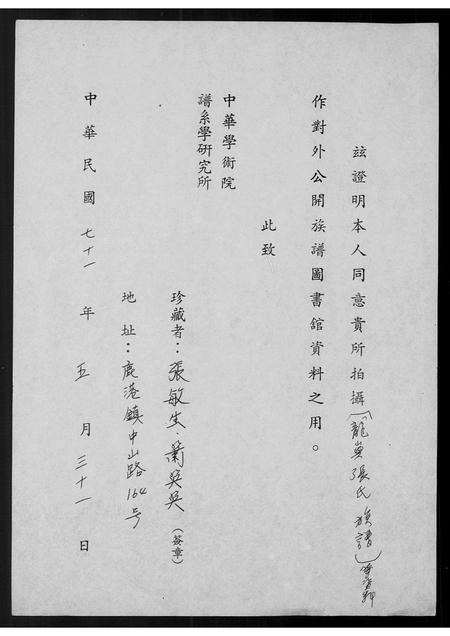 茲證明本人同意貴所拍攝(龍𡶶張氏族譜)
作對外公開族譜圖書館資料之用。
此致
中華學術院
譜系學研究所
珍藏者：張敏生．蕭英吳(簽章)
地址：鹿港鎮中山路164号
中華民國七十一年五月三十一日